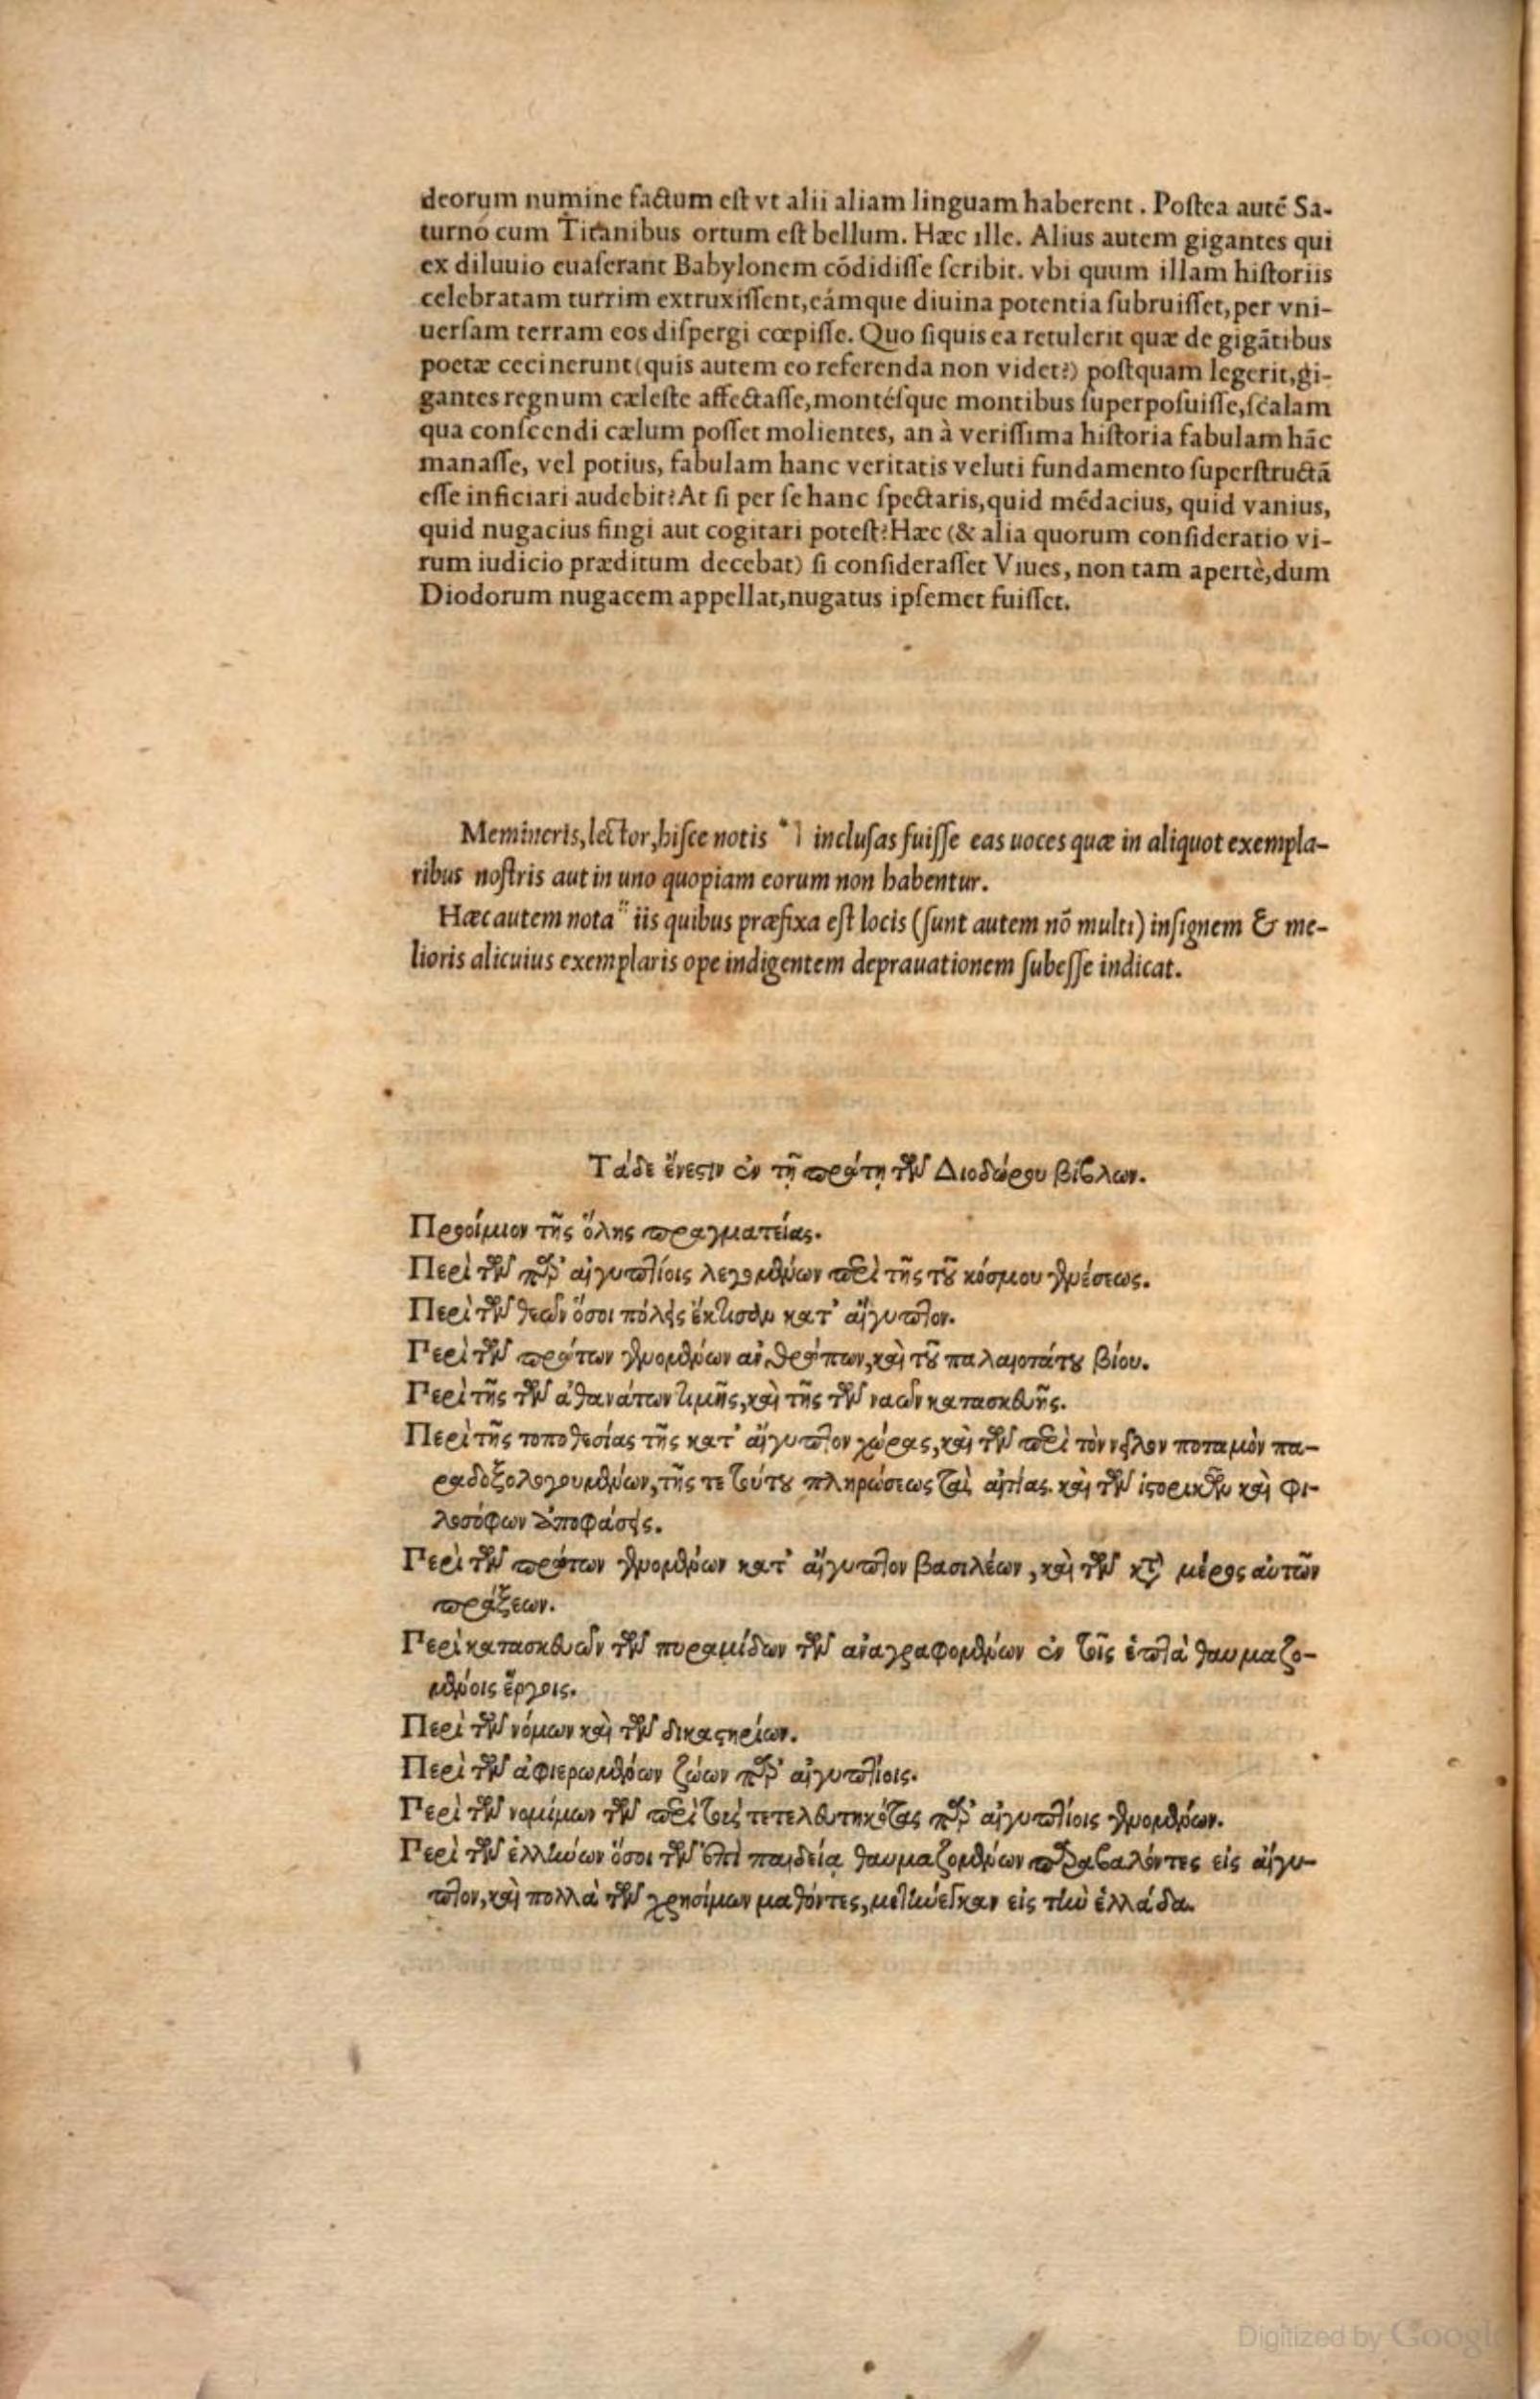 deorum numine factum est vt alii aliam linguam haberent. Postea autē Sa-
turno cum Titanibus ortum est bellum. Hæc ille. Alius autem gigantes qui
ex diluuio euaserant Babylonem cōdidisse scribit. vbi quum illam historiis
celebratam turrim extruxissent, eámque diuina potentia subruisset, per vni-
uersam terram eos dispergi cœpisse. Quo siquis ea retulerit quæ de gigātibus
poetæ cecinerunt (quis autem eo referenda non videt?) postquam legerit, gi-
gantes regnum cæleste affectasse, montésque montibus superposuisse, scalam
qua conscendi cælum posset molientes, an à verissima historia fabulam hāc
manasse, vel potius, fabulam hanc veritatis veluti fundamento superstructā
esse inficiari audebit? At si per se hanc spectaris, quid mēdacius, quid vanius,
quid nugacius fingi aut cogitari potest? Hæc (& alia quorum consideratio vi-
rum iudicio præditum decebat) si considerasset Viues, non tam apertè, dum
Diodorum nugacem appellat, nugatus ipsemet fuisset.
Memineris, lector, hisce notis * ] inclusas fuisse eas uoces quæ in aliquot exempla-
ribus nostris aut in uno quopiam eorum non habentur.
Hæc autem nota " iis quibus præfixa est locis (sunt autem nō multi) insignem & me-
lioris alicuius exemplaris ope indigentem deprauationem subesse indicat.
Τάδε ἔνεστιν ἐν τῇ πρώτῃ τῶν Διοδώρου βίβλων.
Προοίμιον τῆς ὅλης πραγματείας.
Περὶ τῶν παρ' αἰγυπτίοις λεγομένων περὶ τῆς τοῦ κόσμου γενέσεως.
Περὶ τῶν θεῶν ὅσοι πόλεις ἔκτισαν κατ' αἴγυπτον.
Περὶ τῶν πρώτων γενομένων ἀνθρώπων, καὶ τοῦ παλαιοτάτου βίου.
Περὶ τῆς τῶν ἀθανάτων τιμῆς, καὶ τῆς τῶν ναῶν κατασκευῆς.
Περὶ τῆς τοποθεσίας τῆς κατ' αἴγυπτον χώρας, καὶ τῶν περὶ τὸν νεῖλον ποταμὸν πα-
ραδοξολογουμένων, τῆς τε τούτου πληρώσεως τὰς αἰτίας. καὶ τῶν ἱστορικῶν καὶ φι-
λοσόφων ἀποφάσεις.
Περὶ τῶν πρώτων γενομένων κατ' αἴγυπτον βασιλέων, καὶ τῶν κατὰ μέρος αὐτῶν
πράξεων.
Περὶ κατασκευῶν τῶν πυραμίδων τῶν ἀναγραφομένων ἐν τοῖς ἑπτὰ θαυμαζο-
μένοις ἔργοις.
Περὶ τῶν νόμων καὶ τῶν δικαστηρίων.
Περὶ τῶν ἀφιερωμένων ζώων παρ' αἰγυπτίοις.
Περὶ τῶν νομίμων τῶν περὶ τοὺς τετελευτηκότας παρ' αἰγυπτίοις γενομένων.
Περὶ τῶν ἑλλήνων ὅσοι τῶν ἐπὶ παιδείᾳ θαυμαζομένων παραβαλόντες εἰς αἴγυ-
πτον, καὶ πολλὰ τῶν χρησίμων μαθόντες, μετήνεγκαν εἰς τὴν ἑλλάδα.
Digitized by Google